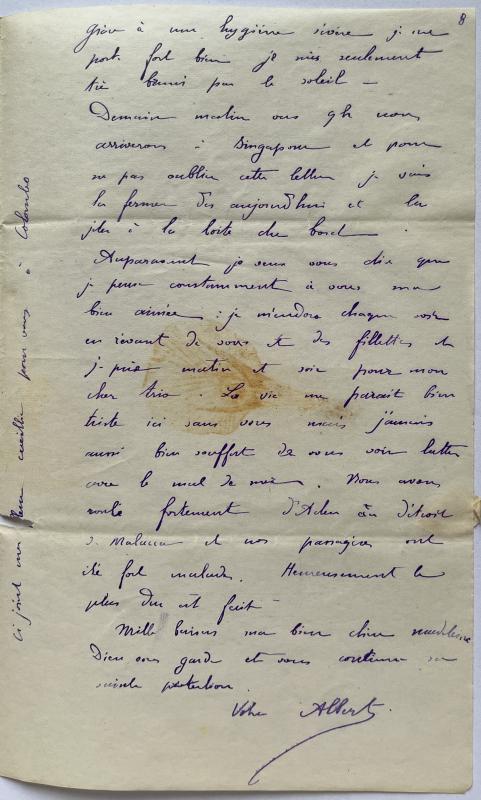 8
Grâce à une hygiène sévère je me
porte fort bien je suis seulement
très bruni par le soleil —
Demain matin vers 9h nous
arriverons à Singapour et pour
ne pas oublier cette lettre je vais
la fermer dès aujourd'hui et la
jeter à la boite du bord .
Auparavant je veux vous dire que
je pense constamment à vous ma
bien aimée : je m'endors chaque soir
en rêvant de vous et des fillettes et
je prie matin et soir pour mon
cher trio . La vie me parait bien
triste ici sans vous mais j'aurais
aussi bien souffert de vous voir lutter
avec le mal de mer . Nous avons
roulé fortement d'Aden au détroit
de Malacca et nos passagères ont
été fort malades. Heureusement le
plus dur est fait
Mille baisers ma bien chère
Dieu vous garde et vous continue sa
sainte protection.
Votre Albert.
Ci joint une fleur cueillie pour vous à Colombo